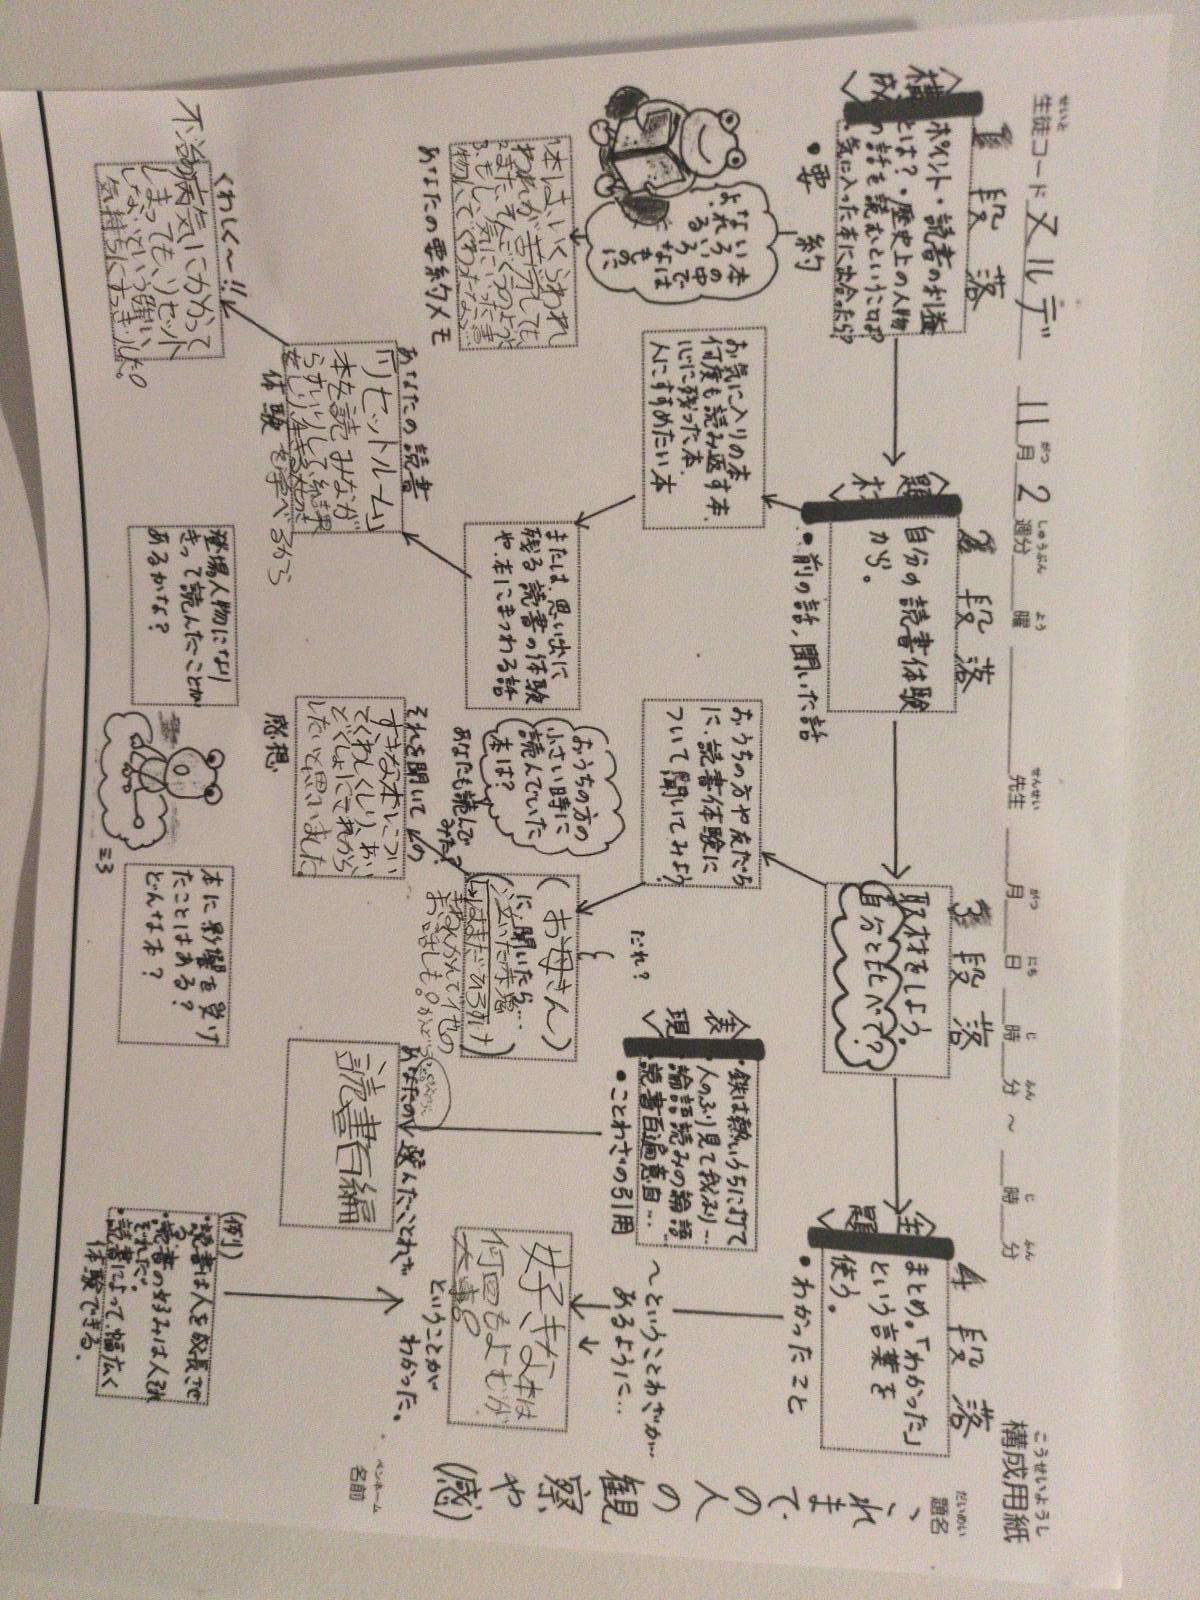 構成用紙
こうせいようし
題名
だいめい
これまで
の人の
観察や
(感)
名前
ペンネーム
生徒コード ヌルデ 11月2週分 曜 先生 月 日 時 分 〜 時 分
せいと
がつ
しゅうぶん
よう
せんせい
がつ
にち
じ
ふん
じ
ふん
1段落
構成
ポイント・読書の利益
とは?・歴史上の人物
の話を読むということは
・気に入った本に出会ったら?
・要約
本の中では
いろいろなものに
なれるよ。
本はいくらわれ
われが苦労しても
物にしてくれる
あなたの要約メモ
2段落
題材
自分の読書体験
から。
・前の話、聞いた話
お気に入りの本
何度も読み返す本、
心に残った本、
人にすすめたい本
または、思い出に
残る読書の体験
や、本にまつわる話
あなたの読書
体験
『リセットルーム』
本を読みながら
を学べるから
くわしく〜!!
不治の病気にかかって
しまってもリセット
しないという強い
気持ちにすっきりした。
3段落
取材をしよう。
自分と比べて?
おうちの方や友だち
に、読書体験に
ついて聞いてみよう
だれ?
(お母さん)
に聞いたら…
泣いた赤鬼
おうちの方の
小さい時に
読んでいた
本は?
あなたも読んで
みた?
それを聞いての
感想
すきな本につい
てくわしくしり、わ
どくしょにこれから
したいと思いました
登場人物になり
きって読んだことが
あるかな?
本に影響を受け
たことはある?
どんな本?
4段落
主題
まとめ。「わかった」
という言葉を
使う。
・わかったこと
表現
・鉄は熱いうちに打て
・人のふり見て我ふり…
・論語読みの論語…
・読書百遍意自…
・ことわざの引用
〜ということわざが…
あるように…
あなたの選んだことわざ
読書百編
好きな本は
何回もよむが
大事。
ということが
わかった。
(例)
・読書は人を成長させ
る。
・読書の好みは人それ
ぞれだ。
・読書によって、幅広く
体験できる。